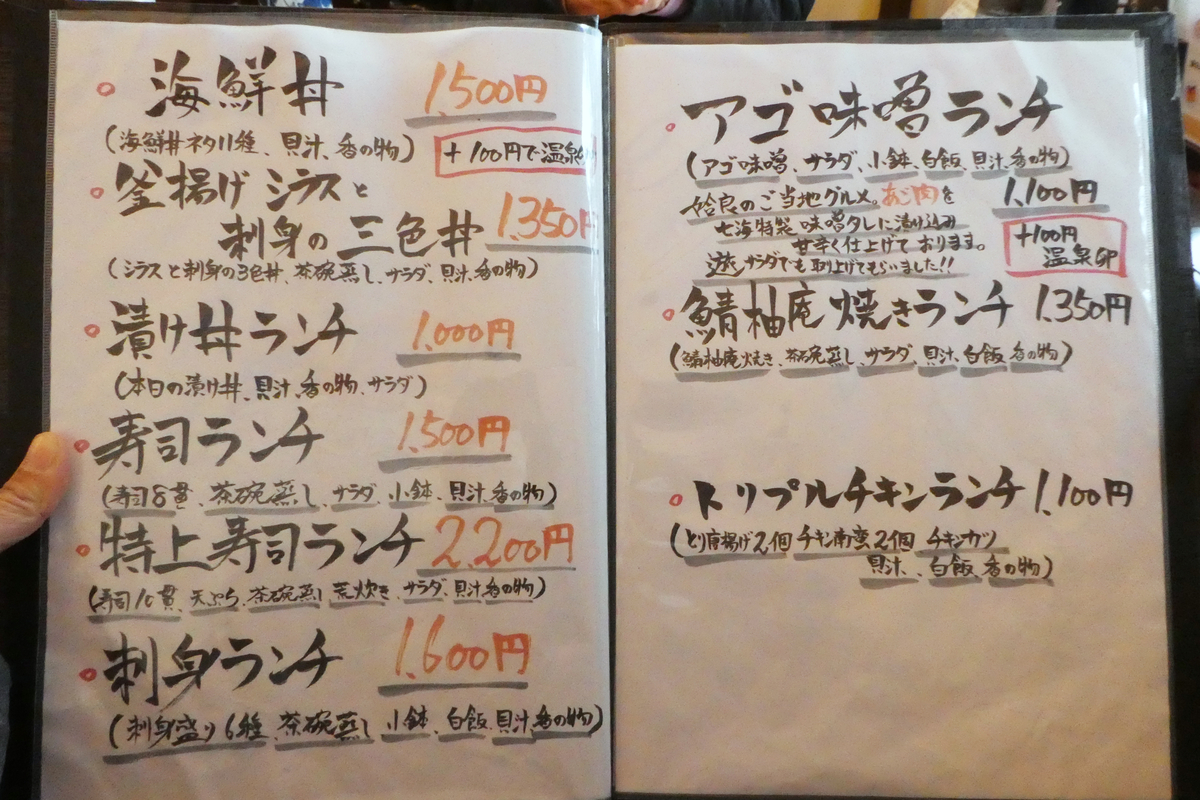 海鮮丼 1500円
(海鮮丼ネタ11種、貝汁、香の物)
+100円で温泉
釜揚げシラスと
刺身の三色丼 1.350円
(シラスと刺身の3色丼、茶碗蒸し、サラダ、貝汁、香の物)
漬け丼ランチ 1.000円
(本日の漬け丼、貝汁、香の物、サラダ)
寿司ランチ 1.500円
(寿司8貫、茶碗蒸し、サラダ、小鉢、貝汁、香の物)
特上寿司ランチ 2.200円
(寿司10貫、天ぷら、茶碗蒸し、荒炊き、サラダ、貝汁、香の物)
刺身ランチ 1.600円
(刺身盛り6種、茶碗蒸し、小鉢、白飯、貝汁、香の物)
アゴ味噌ランチ
(アゴ味噌、サラダ、小鉢、白飯、貝汁、香の物)
姶良のご当地グルメ。あご肉を 1.100円
七海特製味噌タレに漬け込み
甘辛く仕上げております。
遊サラダでも取り上げてもらいました!!
+100円
温泉卵
鯖柚庵焼きランチ 1.350円
(鯖柚庵焼き、茶碗蒸し、サラダ、貝汁、白飯、香の物)
トリプルチキンランチ 1.100円
(とり唐揚げ2個 チキン南蛮2個 チキンカツ
貝汁、白飯、香の物)